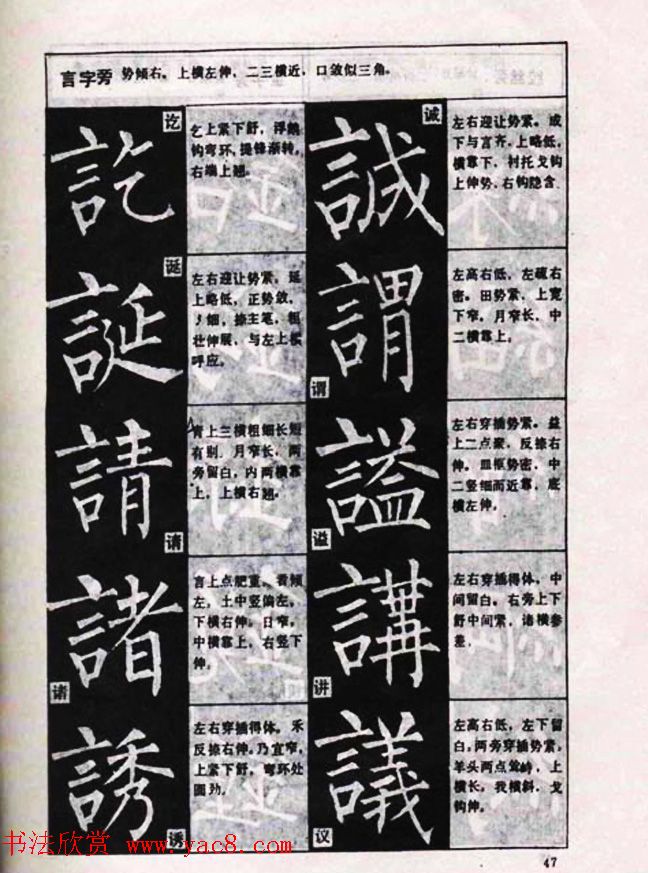 言字旁 势倾右。上横左伸，二三横近，口敛似三角。
訖
讫
乞上紧下舒，浮鹅
钩弯环，提锋渐转，
右端上翘。
誠
诚
左右迎让势紧。成
下与言齐，上略低，
横靠下，衬托戈钩
上伸势，右钩隐含
誕
诞
左右迎让势紧。延
上略低，正势敛，
细，捺主笔，粗
壮伸展，与左上横
呼应。
謂
谓
左高右低，左疏右
密。田势紧，上宽
下窄。月窄长，中
二横靠上。
請
请
青上三横粗细长短
有别，月窄长，两
旁留白，内两横靠
上，上横右翘。
謚
谥
左右穿插势紧。益
上二点聚，反捺右
伸。皿框势密，中
二竖细而近靠，底
横左伸。
諸
诸
言上点肥重，者倾
左，土中竖偏左，
下横右伸。日窄，
中横靠上，右竖下
伸。
講
讲
左右穿插得体，中
间留白。右旁上下
舒中间紧，诸横参
差
誘
诱
左右穿插得体。禾
反捺右伸，乃宜窄，
上紧下舒，弯环处
圆劲。
議
议
左高右低，左下留
白，两旁穿插势紧，
羊头两点耸峙，上
横长，我横斜，戈
钩伸。
书法欣赏 www.yac8.com
47